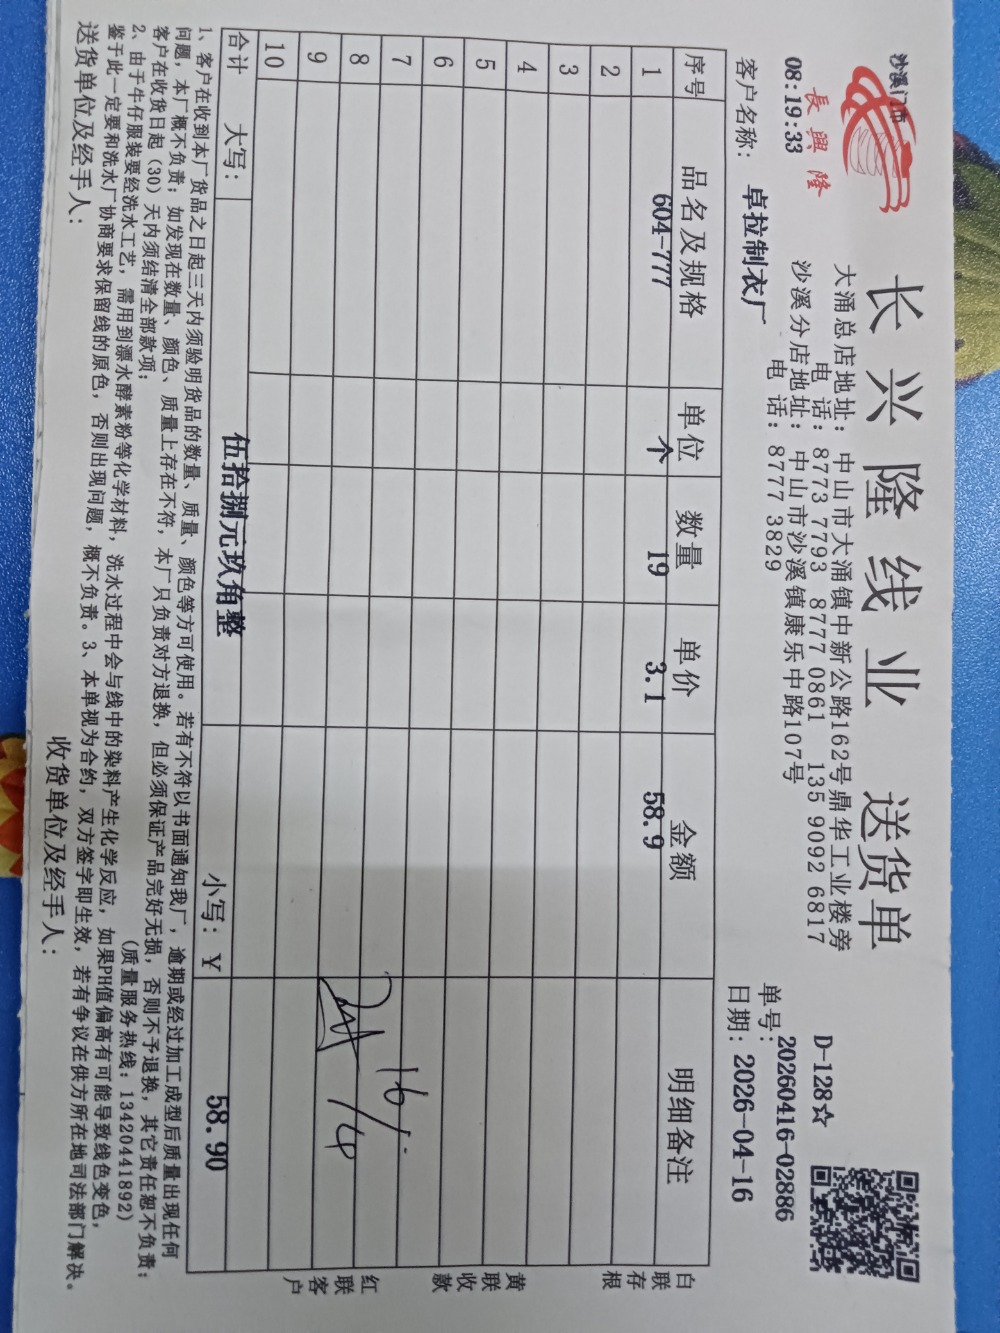 沙溪门市
長興隆
08:19:33
长兴隆线业 送货单
大涌总店地址: 中山市大涌镇中新公路162号鼎华工业楼旁
电话: 8773 7793 8777 0861 135 9092 6817
沙溪分店地址: 中山市沙溪镇康乐中路107号
电话: 8777 3829
D-128☆
单号: 20260416-02886
客户名称: 卓拉制衣厂
日期: 2026-04-16
序号 品名及规格 单位 数量 单价 金额 明细备注
1 604-777 个 19 3.1 58.9
2
3
4
5
6
7
8
9
10
16/4
合计 大写: 伍拾捌元玖角整 小写: ¥ 58.90
白联存根
黄联收款
红联客户
1、客户在收到本厂货品之日起三天内须验明货品的数量、质量、颜色等方可使用。若有不符以书面通知我厂, 逾期或经过加工成型后质量出现任何
问题, 本厂概不负责; 如发现在数量、颜色、质量上存在不符, 本厂只负责对方退换, 但必须保证产品完好无损, 否则不予退换, 其它责任恕不负责;
客户在收货日起 (30) 天内须结清全部款项; (质量服务热线: 13420441892)
2、由于牛仔服装要经洗水工艺, 需用到漂水酵素粉等化学材料, 洗水过程中会与线中的染料产生化学反应, 如果PH值偏高有可能导致线色变色,
鉴于此一定要和洗水厂协商要求保留线的原色, 否则出现问题, 概不负责。3、本单视为合约, 双方签字即生效, 若有争议在供方所在地司法部门解决。
送货单位及经手人: 收货单位及经手人: